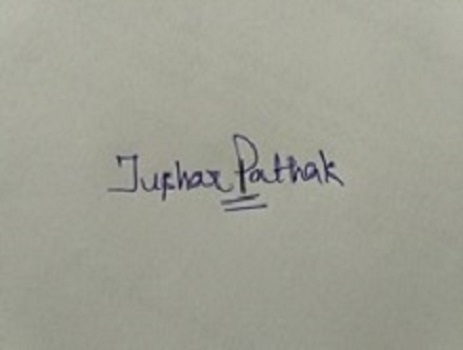 Tushar Pathak